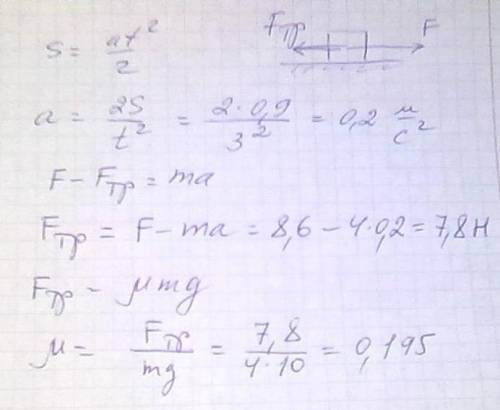 Fтр F
S = at²/2
a = 2S/t² = 2·0,9/3² = 0,2 м/с²
F - Fтр = ma
Fтр = F - ma = 8,6 - 4·0,2 = 7,8 Н
Fтр - μmg
μ = Fтр/mg = 7,8/4·10 = 0,195